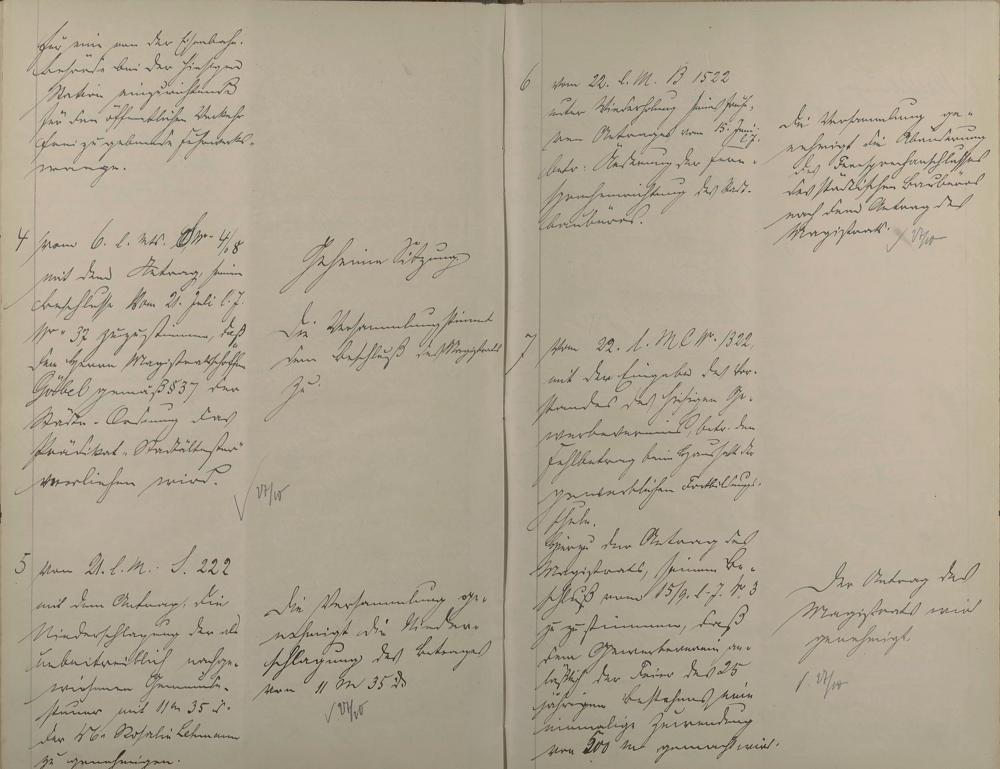 für eine von der Eisenbahn-
behörde bei der hiesigen
Station einzurichtende
für den öffentlichen Verkehr
freizugebende Fuhrwerks-
waage.
4 vom 6. l. Mts. Nr. 4/08
mit dem Antrag, seinem
Beschlusse vom 21. Juli l. J.
Nr. 37 zuzustimmen, daß
dem Herrn Magistratsschöffen
Göbel gemäß § 37 der
Städte-Ordnung das
Prädikat "Stadtältester"
verliehen wird.
Geheime Sitzung
Die Versammlung stimmt
dem Beschluß des Magistrats
zu.
5 vom 21. l. M. S. 222
mit dem Antrag, die
Niederschlagung der als
unbeitreiblich nachge-
wiesenen Gemeinde-
steuer mit 11 M 35 d.
der Rosalie Lehmann
zu genehmigen.
Die Versammlung ge-
nehmigt die Nieder-
schlagung des Betrages
von 11 M 35 d
6 vom 22. l. M. B 1522
unter Wiederholung seines
Antrages vom 15. Juni l. J.
betr. Änderung der Fern-
sprecheinrichtung des Stadt-
bauburos.
Die Versammlung ge-
nehmigt die Abänderung
des Fernsprechanschlusses
des städtischen Baubüros
nach dem Antrag des
Magistrats.
7 vom 22. l. M. C Nr. 1322
mit der Eingabe des Vor-
standes des hiesigen Ge-
werbevereins, betr. den
Fehlbetrag beim Haushalt der
gewerblichen Fortbildungs-
schule.
Hierzu der Antrag des
Magistrats, seinem Be-
schluß vom 15/9. l. J. Nr 3
zuzustimmen, daß
dem Gewerbeverein an-
läßlich der Feier des 25
jährigen Bestehens eine
einmalige Zuwendung
von 500 M gemacht wird.
Der Antrag des
Magistrats wird
genehmigt.